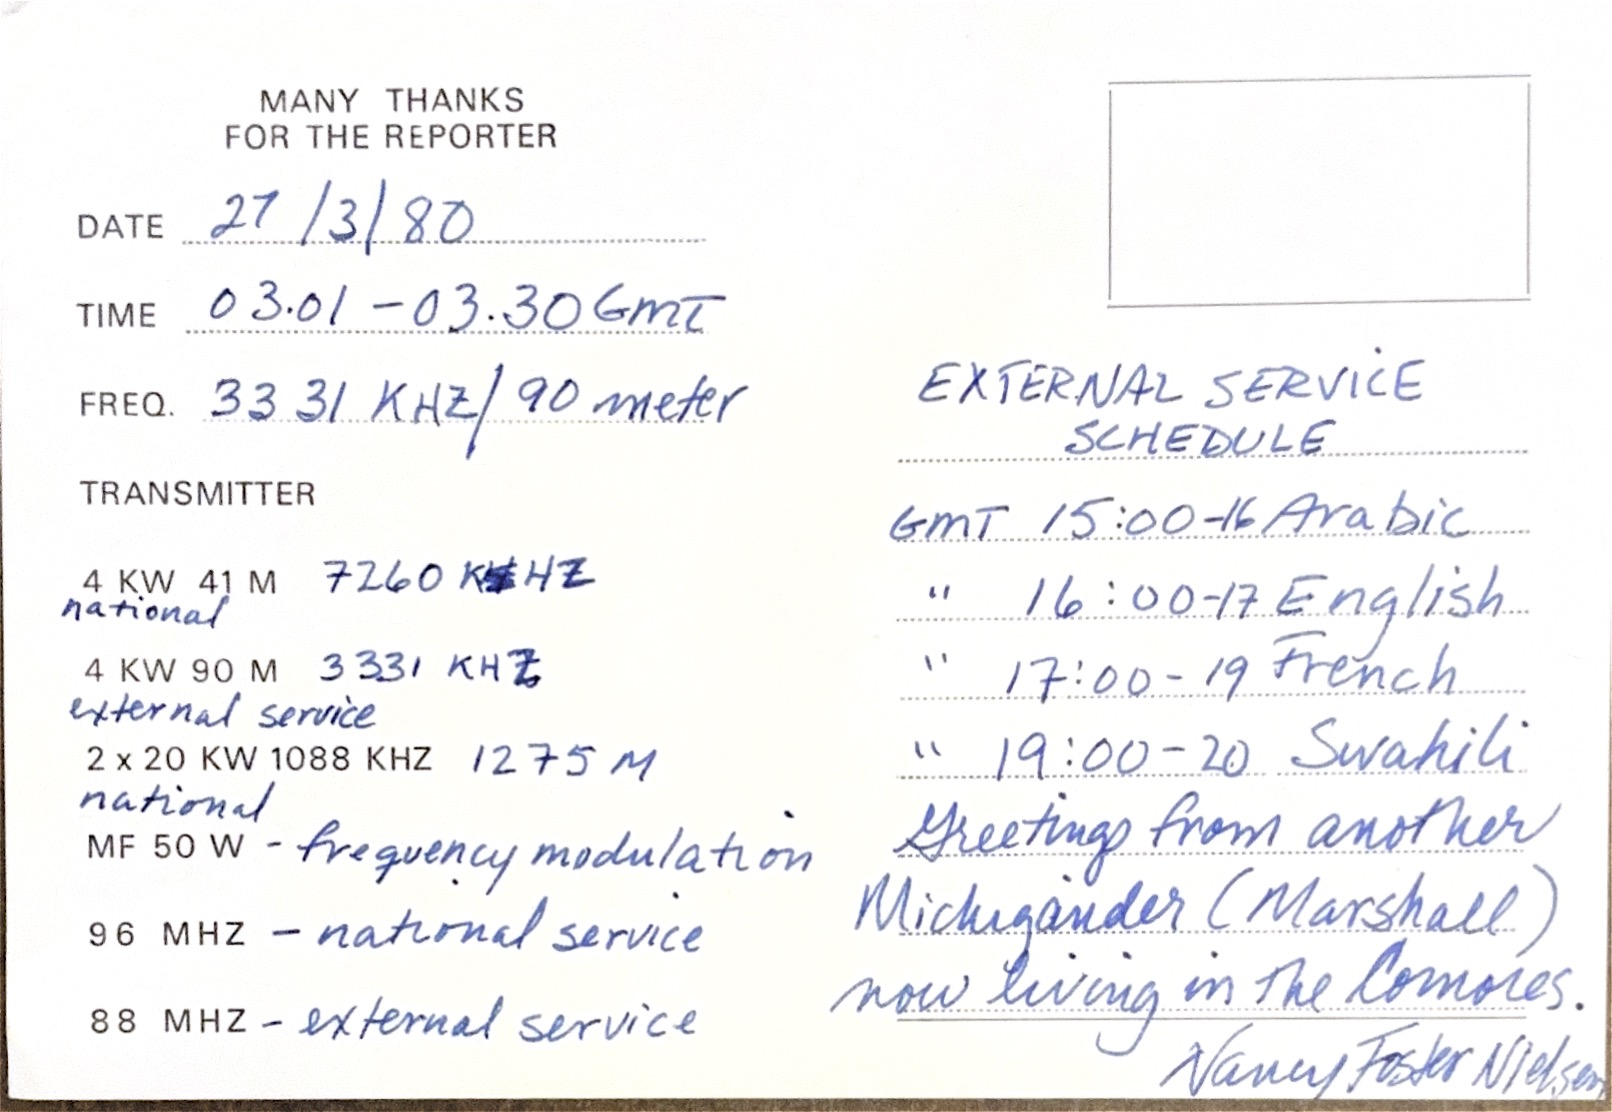 MANY THANKS
FOR THE REPORTER
DATE 27/3/80
TIME 03.01 - 03.30 GMT
FREQ. 3331 KHZ/90 meter
TRANSMITTER
4 KW 41 M 7260 KHZ
national
4 KW 90 M 3331 KHZ
external service
2 x 20 KW 1088 KHZ 1275 M
national
MF 50 W - frequency modulation
96 MHZ - national service
88 MHZ - external service
EXTERNAL SERVICE
SCHEDULE
GMT 15:00-16 Arabic
" 16:00-17 English
" 17:00-19 French
" 19:00-20 Swahili
Greetings from another
Michigander (Marshall)
now living in the Comores.
Nancy Foster Nielsen